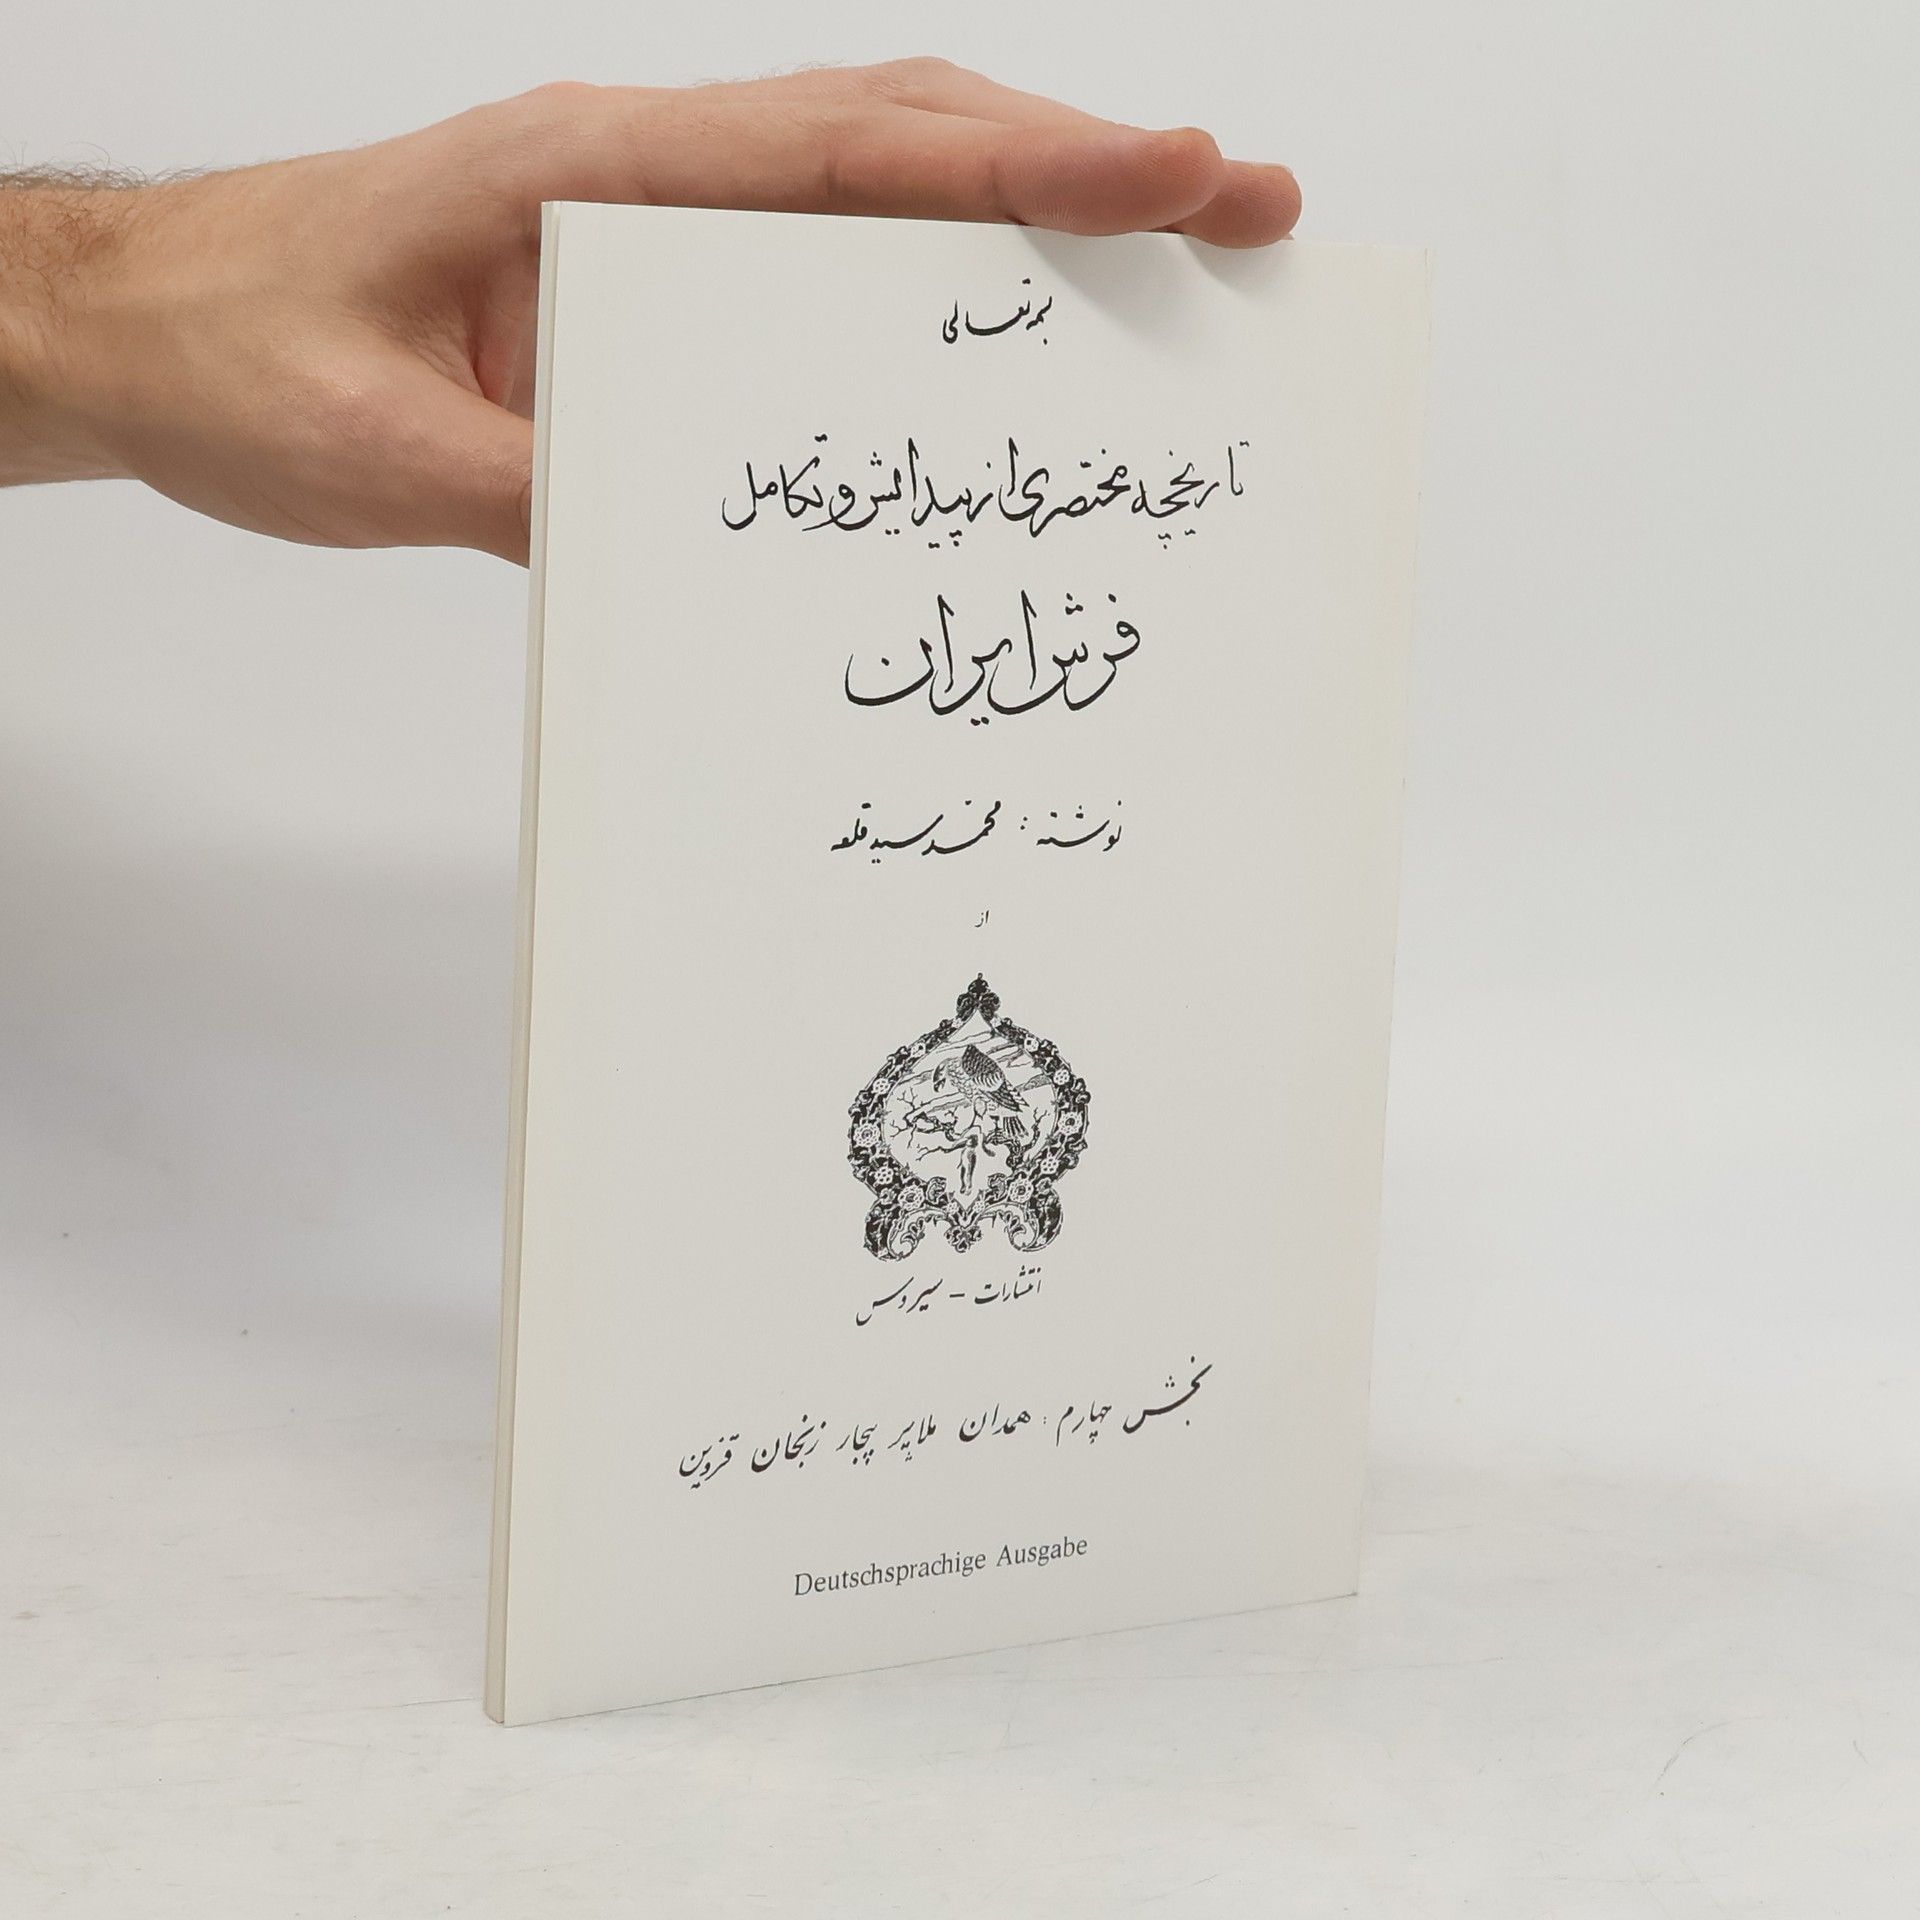 بسمه تعالی
تاریخچه مختصری از پیدایش و تکامل
فرش ایران
نوشته : محمد سید قلعه
از
انتشارات - سیروس
بخش چهارم : همدان ملایر بیجار زنجان قزوین
Deutschsprachige Ausgabe